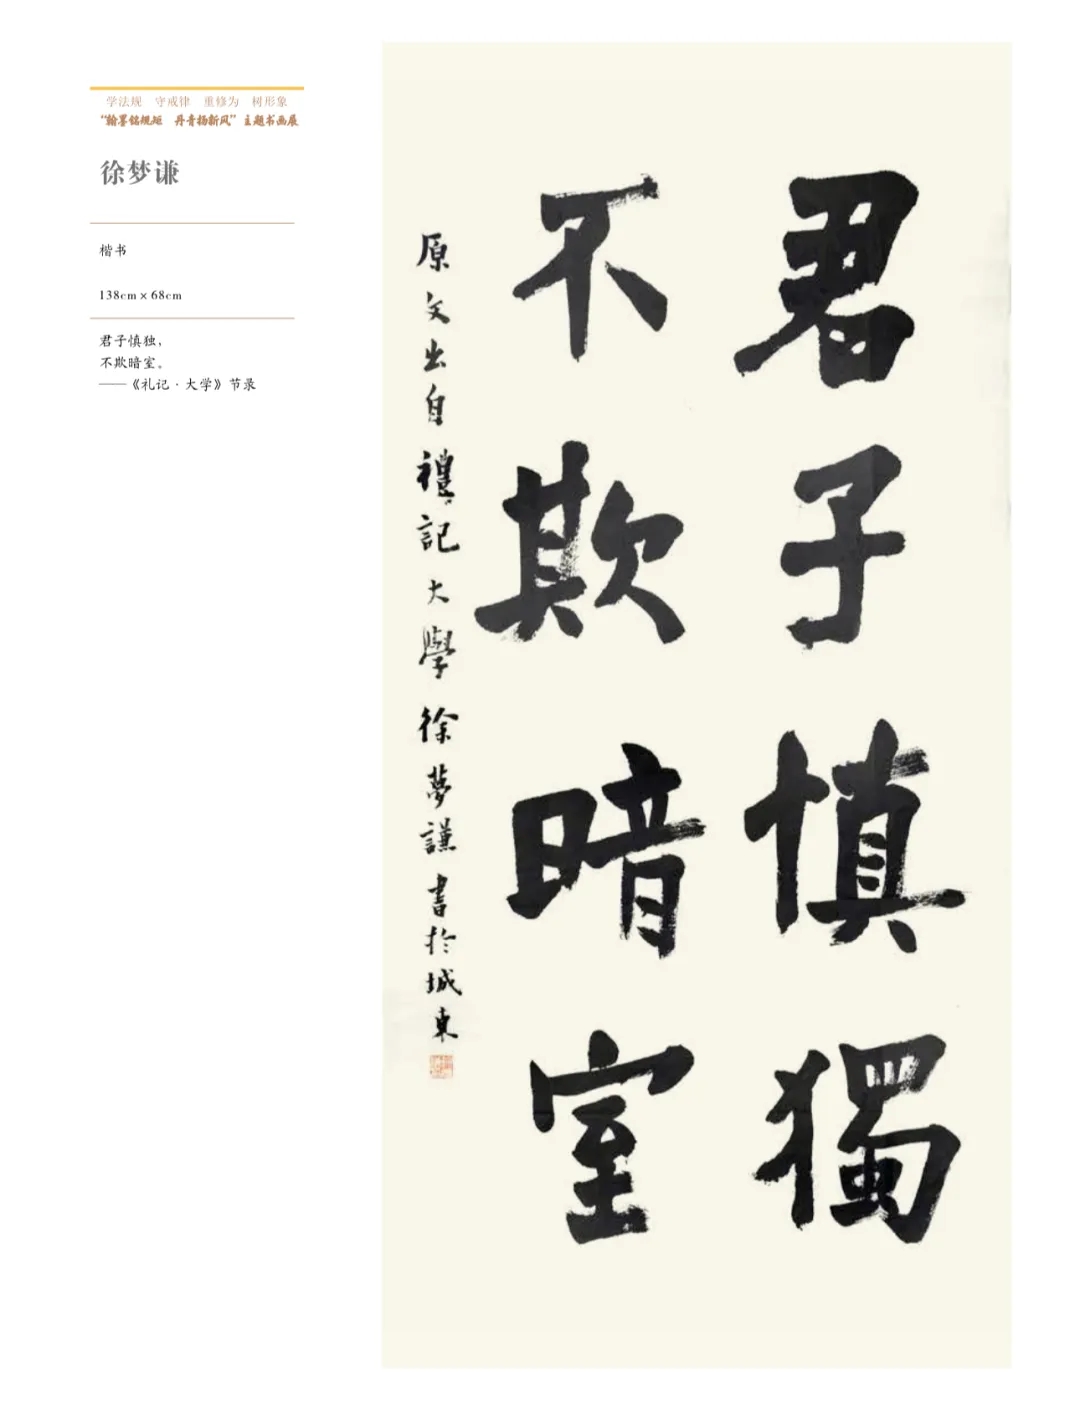 学法规　守戒律　重修为　树形象
“翰墨铭规矩　丹青扬新风”主题书画展
徐梦谦
楷书
138cm × 68cm
君子慎独，
不欺暗室。
——《礼记·大学》节录
君子慎獨
不欺暗室
原文出自禮記大學徐夢謙書於城東